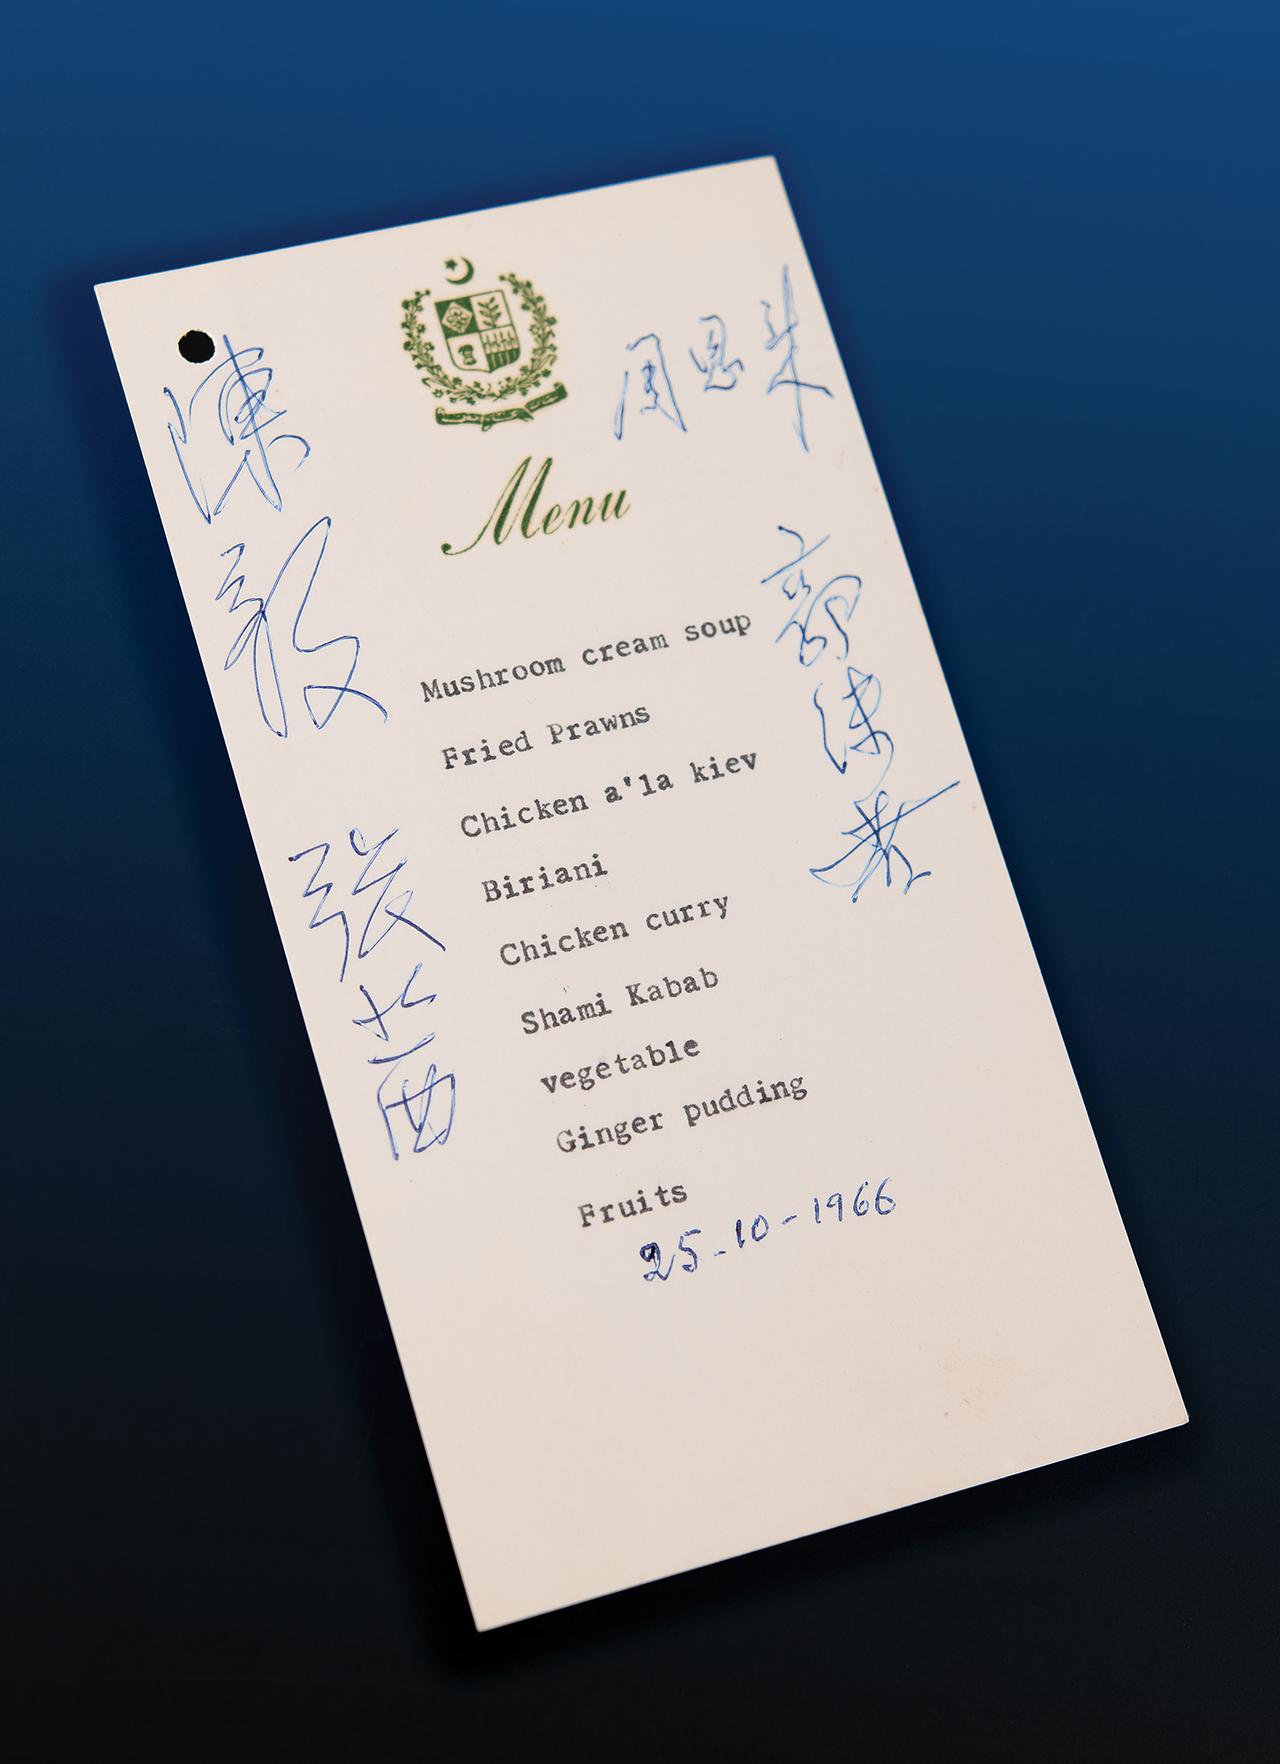 陳毅
周恩来
Menu
Mushroom cream soup
Fried Prawns
Chicken a'la kiev
Biriani
Chicken curry
Shami Kabab
vegetable
Ginger pudding
Fruits
25-10-1966
張茜